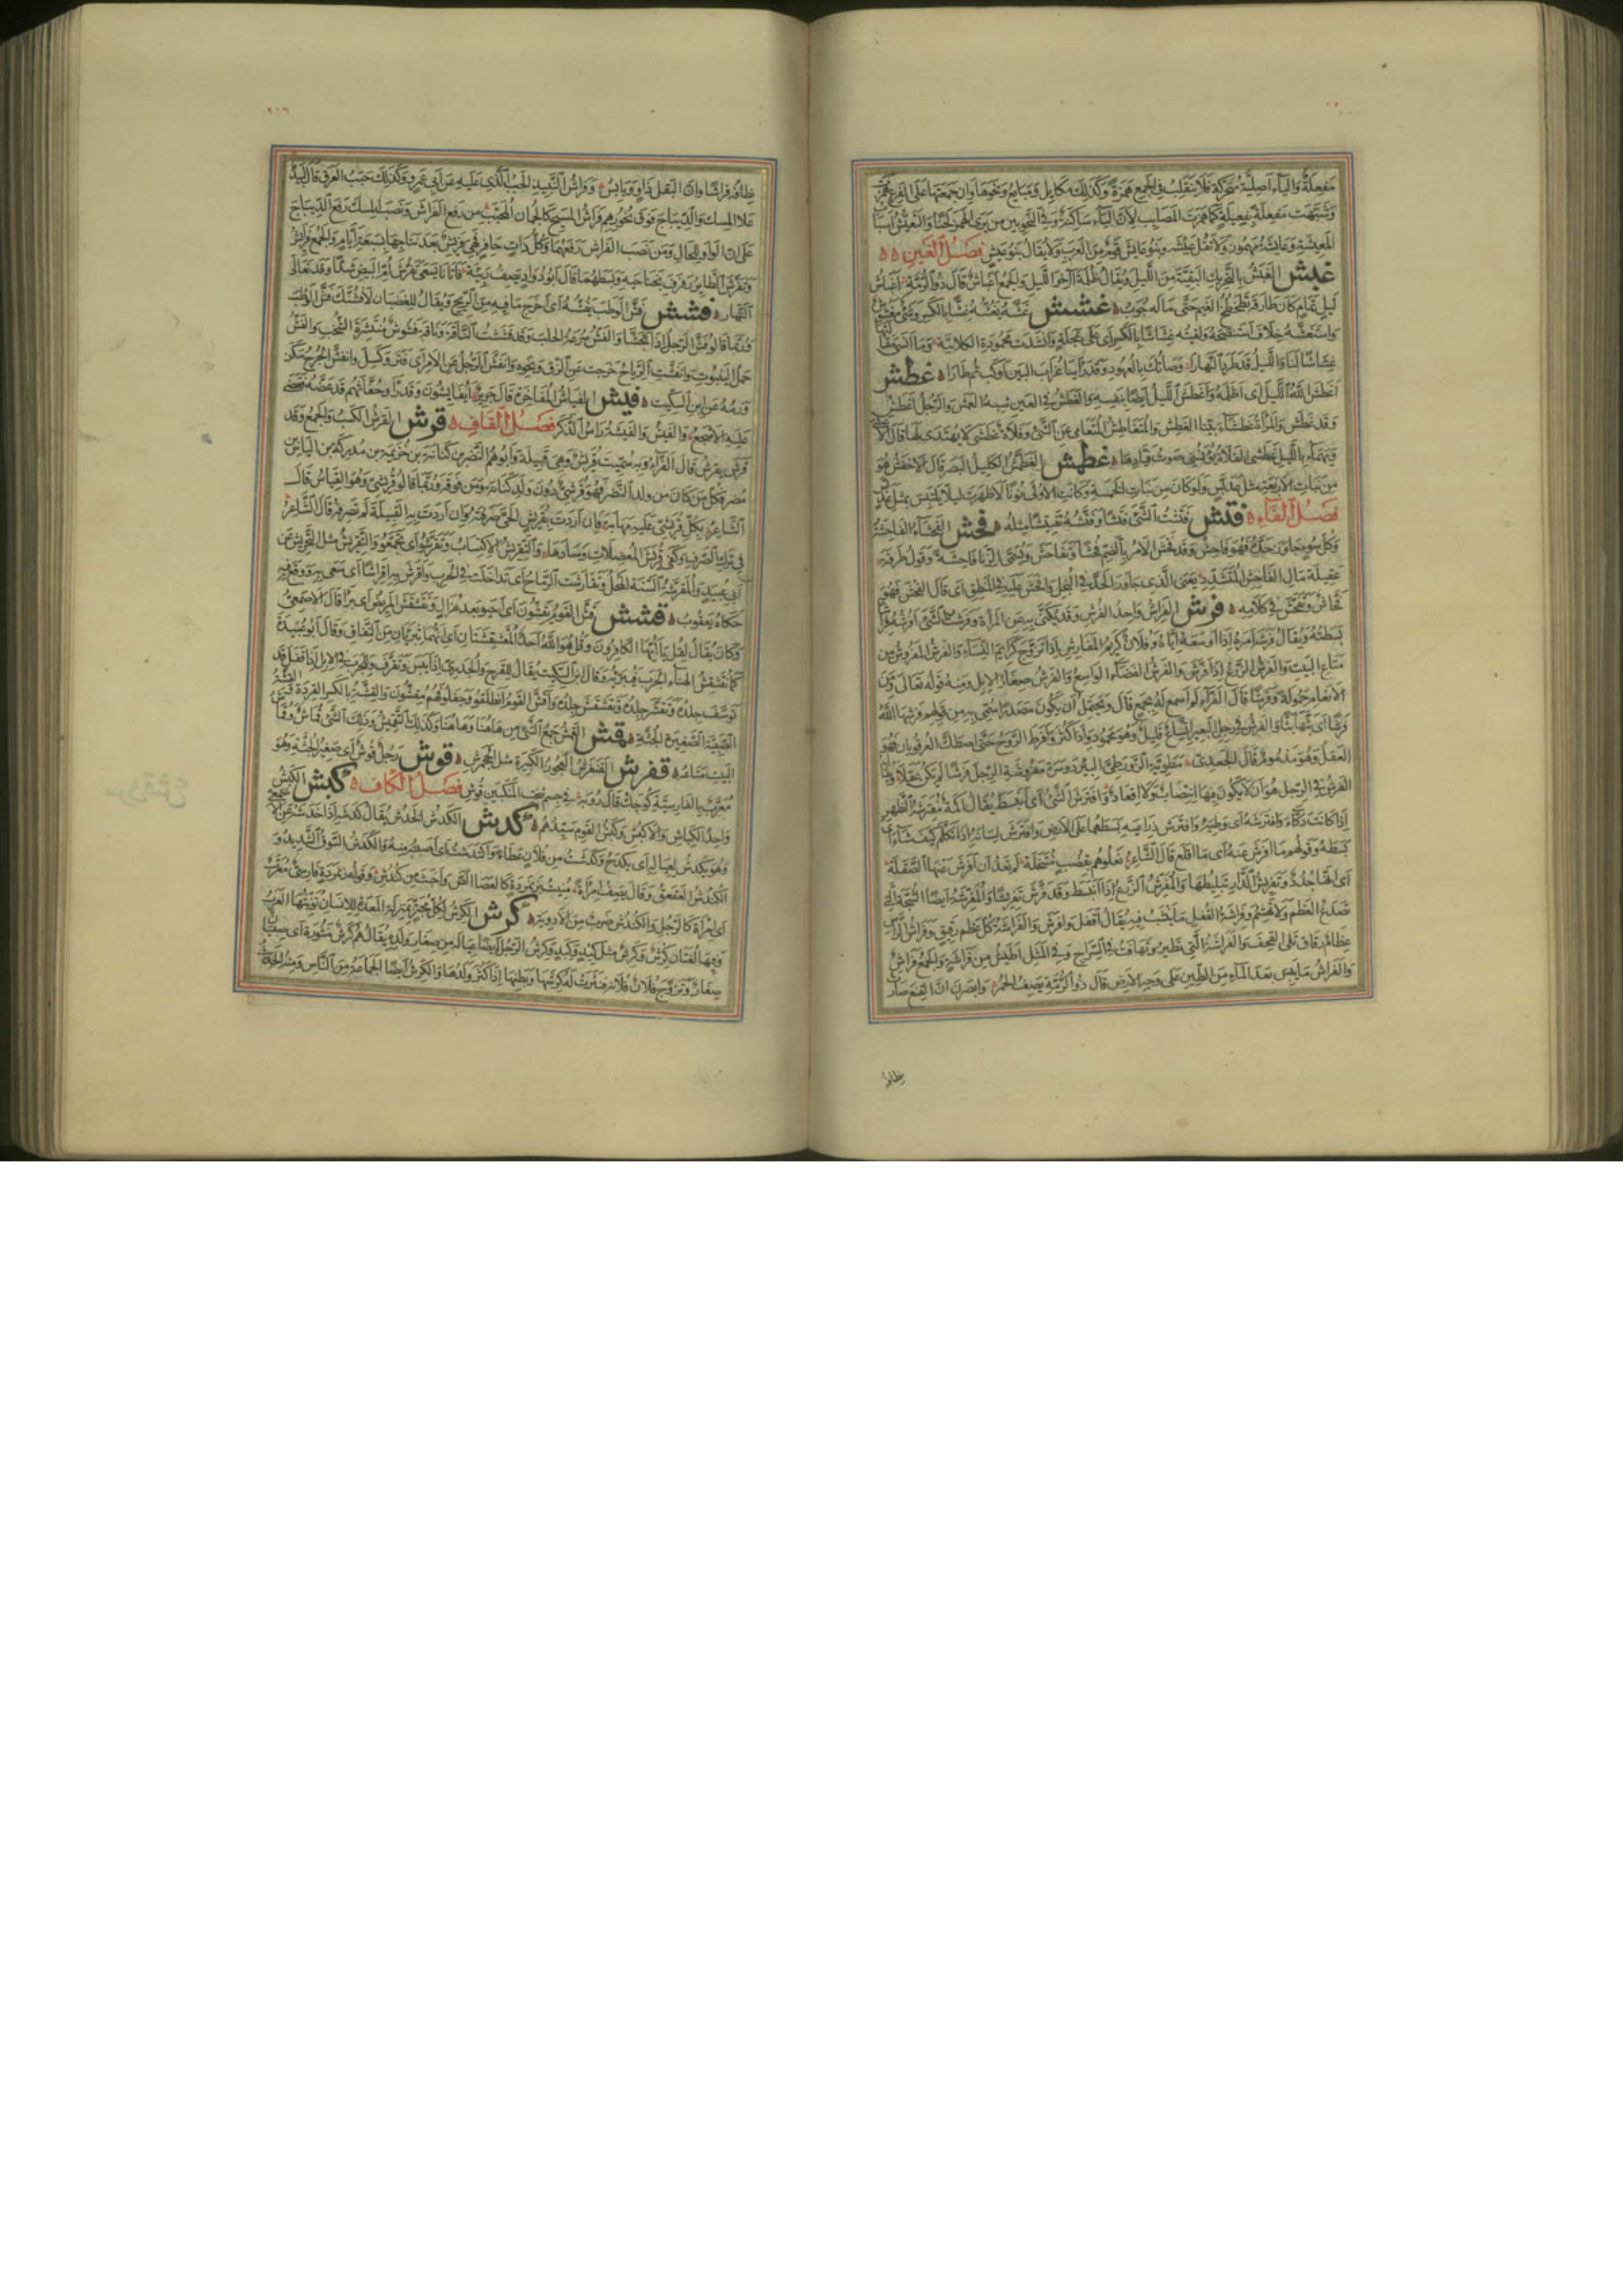 مفعلة والياء اصلية متحركة فلا تنقلب في الجمع همزة وكذلك مكايل ومبايع ونحوها وان جمعتها على الفرع همزت
وشبهت مفعلة بفعيلة كما همزت المصايب لان الياء ساكنة وفي النحويين من يرى الهمز لحنا والتعيش
المعيشة وعائشة مهموزة ولا تقل عيشة وبنو عايش قوم من العرب ولا يقال بنو عيش فصل الغين
غبش الغبش بالتحريك البقية من الليل ويقال ظلمة آخر الليل والجمع اغباش قال ذو الرمة اغباش
ليل تمام كان طارقه تطخطخ الغيم حتى ماله جوب غشش غشه يغشه غشا بالكسر وشئ مغشوش
واستغشه خلاف استنصحه ولقيته غشاشا بالكسر اى على عجلة وانشدت محمودة الكلابية وما انسى مقالتها
غشاشا لنا والليل قد طرد النهارا وصاتك بالعهود وقد راينا غراب البين اوكب ثم طارا غطش
اغطش الله الليل اى اظلمه واغطش الليل ايضا بنفسه والغطش في العين شبه العمش والرجل اغطش
وقد غطش والمراة غطشاء بينا الغطش والمتغاطش المتعامى عن الشئ وفلاة غطشى لا يهتدى لها قال الاعشى
ويهماء بالليل غطشى الفلاة يؤنسنى صوت فيادها غطمش الغطمش الكليل البصر قال الاخفش هو
من بنات الاربعة مثل عدبس ولو كان من بنات الخمسة وكانت الاولى نونا لاظهرت ليلا يلتبس بمثل عدبس
فصل الفاء فتش فتشت الشئ فتشا وفتشه تفتيشا مثله فحش الفحشاء الفاحشة
وكل سوء جاوز حده فهو فاحش وقد فحش الامر بالضم فحشا وتفاحش ويسمى الزنا فاحشة وقول طرفة
عقيلة مال الفاحش المتشدد يعنى الذى جاوز الحد في البخل وافحش عليه في المنطق اى قال الفحش فهو
فحاش وتفحش في كلامه فرش الفراش واحد الفرش وقد يكنى به عن المراة وفرشت الشئ افرشه فراشا
بسطته ويقال فرشه امره اذا اوسعه اياه وفلان كريم المفارش اذا تزوج كرايم النساء والفرش المفروش من
متاع البيت والفرش الزرع اذا فرش والفرش الفضاء الواسع والفرش صغار الابل ومنه قوله تعالى ومن
الانعام حمولة وفرشا قال الفراء لم اسمع له بجمع قال ويحتمل ان يكون مصدرا سمى به من قولهم فرشها الله
فرشا اى بثها بثا والفرش في رجل البعير اتساع قليل وهو محمود واذا كثر وافرط الروح حتى اصطك العرقوبان فهو
العقل وهو مذموم قال الجعدى مطوية الزور طى البئر دوسرة مفروشة الرجل فرشا لم يكن عقلا
الفرش في الرجل هو ان لا يكون فيها انتصاب ولا اقعاد وافترش الشئ اى انبسط يقال اكمة مفترشة الظهر
اذا كانت دكاء وافترشه اى وطئه وافترش ذراعيه بسطهما على الارض وافترش لسانه اذا تكلم كيف شاء اى
بسطه وقولهم ما افرش عنه اى ما اقلع قال الشاعر نعلوهم بقضب منتخله لم تعد ان افرش عنها الصقله
اى انها جدد وتفريش الدار تبليطها والمفرش الزرع اذا انبسط وقد فرش تفريشا والمفرشة ايضا الشجة التى
تصدع العظم ولا تهشم وفراشة القفل ما ينشب فيه يقال اقفل وافرش والفراشة كل عظم رقيق وفراش الراس
عظام رقاق تلى القحف والفراشة التى تطير وتهافت في السراج وفي المثل اطيش من فراشة والجمع فراش
والفراش ما يبس بعد الماء من الطين على وجه الارض قال ذو الرمة يصف الحمر وابصرن ان القنع صارت
نطافه
٢١٦
نطافه فراشا وان البقل ذاو ويابس وفراش النبيذ الحبب الذى عليه عن ابى عمرو وكذلك حبب العرق قال لبيد
علا المسك والديباج فوق نحورهم فراش المسيح كالجمان المحبب من رفع الفراش ونصب المسك رفع الديباج
على ان الواو للحال ومن نصب الفراش رفعهما وكل ذات حافر فهى فريش بعد نتاجها بسبعة ايام والجمع فرائش
وتفرش الطاير رفرف بجناحيه وبسطهما قال ابو دواد يصف ربيئة فاتانا يسعى تفرش ام البيض شدا وقد تعالى
النهار فشش فش الوطب يفشه اى اخرج ما فيه من الريح ويقال للغضبان لافشنك فش الوطب
وربما قالوا فش الرجل اذا تجشا والفش سرعة الحلب وقد فششت الناقة وناقة فشوش منتشرة الشخب والفش
حمل الينبوت وانفشت الرياح خرجت عن الزق ونحوه وانفش الرجل عن الامر اى فتر وكسل وانفش الجرح سكن
ورمه عن ابن السكيت فيش الفياش المفاخرة قال جرير ايفايشون وقد راوا حفاثهم قد عضه فقضى
عليه الاشجع والفيش والفيشة راس الذكر فصل القاف قرش القرش الكسب والجمع وقد
قرش يقرش قال الفراء وبه سميت قريش وهى قبيلة وابوهم النضر بن كنانة بن خزيمة بن مدركة بن الياس
مضر فكل من كان من ولد النضر فهو قرشى دون ولد كنانة ومن فوقه وربما قالوا قريشى وهو القياس قال
الشاعر بكل قريشى عليه مهابة فان اردت بقريش الحى صرفته وان اردت به القبيلة لم تصرفه قال الشاعر
في ترك الصرف وكفى قريش المعضلات وسادها والتقريش الاكتساب وتقرشوا اى تجمعوا والتقريش مثل التحريش عن
ابى عبيد والمقرشة السنة المحل وتقارشت الرماح اى تداخلت في الحرب واقرش به اقراشا اى سعى به ووقع فيه
حكاه يعقوب قشش قش القوم يقشون اى احيوا بعد هزال وتقشقش المريض اى برأ قال الاصمعى
وكان يقال لقل يا ايها الكافرون وقل هو الله احد المقشقشتان اى انهما تبريان من النفاق وقال ابو عبيدة
كما تقشقش الهناء الجرب فيبريه وقال ابن السكيت يقال للقرح والجدرى اذا يبس وتقرف وللجرب في الابل اذا قفل قد
توسف جلده وتقشر جلده وتقشقش جلده واقش القوم انطلقوا وجفلوا فهم مقشون والقشة بالكسر القردة
الصبية الصغيرة الجثة قمش القمش جمع الشئ من هاهنا وهاهنا وكذلك التقميش وذلك الشئ قماش وقماش
البيت متاعه قنفرش القنفرش العجوز الكبيرة مثل الجحمرش قوش رجل قوش اى صغير الجثة وهو
معرب بالفارسية كوجك قال رؤبة في جسم شخت المنكبين قوش فصل الكاف كبش الكبش
واحد الكباش والاكبش وكبش القوم سيدهم كدش الكدش الخدش يقال كدشه اذا خدشه عن
وهو يكدش لعياله اى يكدح وكدشت من فلان عطاء واكتدشت اى اصبت منه والكدش السوق الشديد و
الكندش العقعق وقال يصف امراة منيت بزنمردة كالعصا الص واخبث من كندش وقوله زنمردة فارسى معرب
اى امراة كالرجل والكندش ضرب من الادوية كرش الكرش لكل مجتر بمنزلة المعدة للانسان تؤنثها العرب
وفيها لغتان كرش وكرش مثل كبد وكبد وكرش الرجل ايضا عياله من صغار ولده يقال هم كرش منثورة اى صبيان
صغار وتزوج فلان فلانة فنثرت له كرشها وبطنها اذا كثر ولدها والكرش ايضا الجماعة من الناس ومنه الحديث